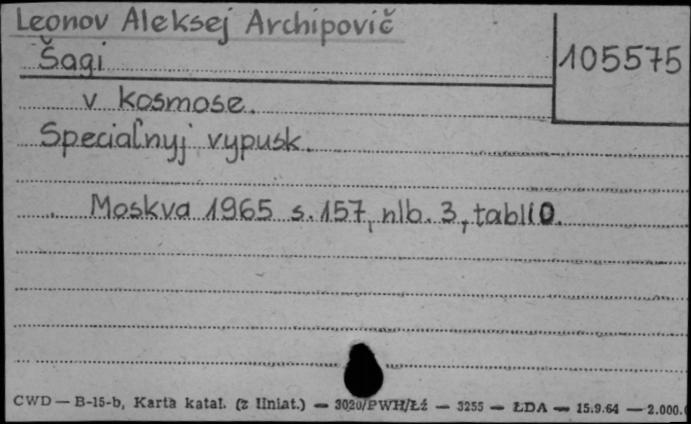 Leonov Aleksej Archipovič
Šagi
105575
v kosmose.
Specialnyj vypusk.
Moskva 1965 s. 157, nlb. 3, tabl10.
CWD — B-15-b, Karta katal. (z liniat.) — 3020/PWH/Łź — 3255 — ŁDA — 15.9.64 — 2.000.